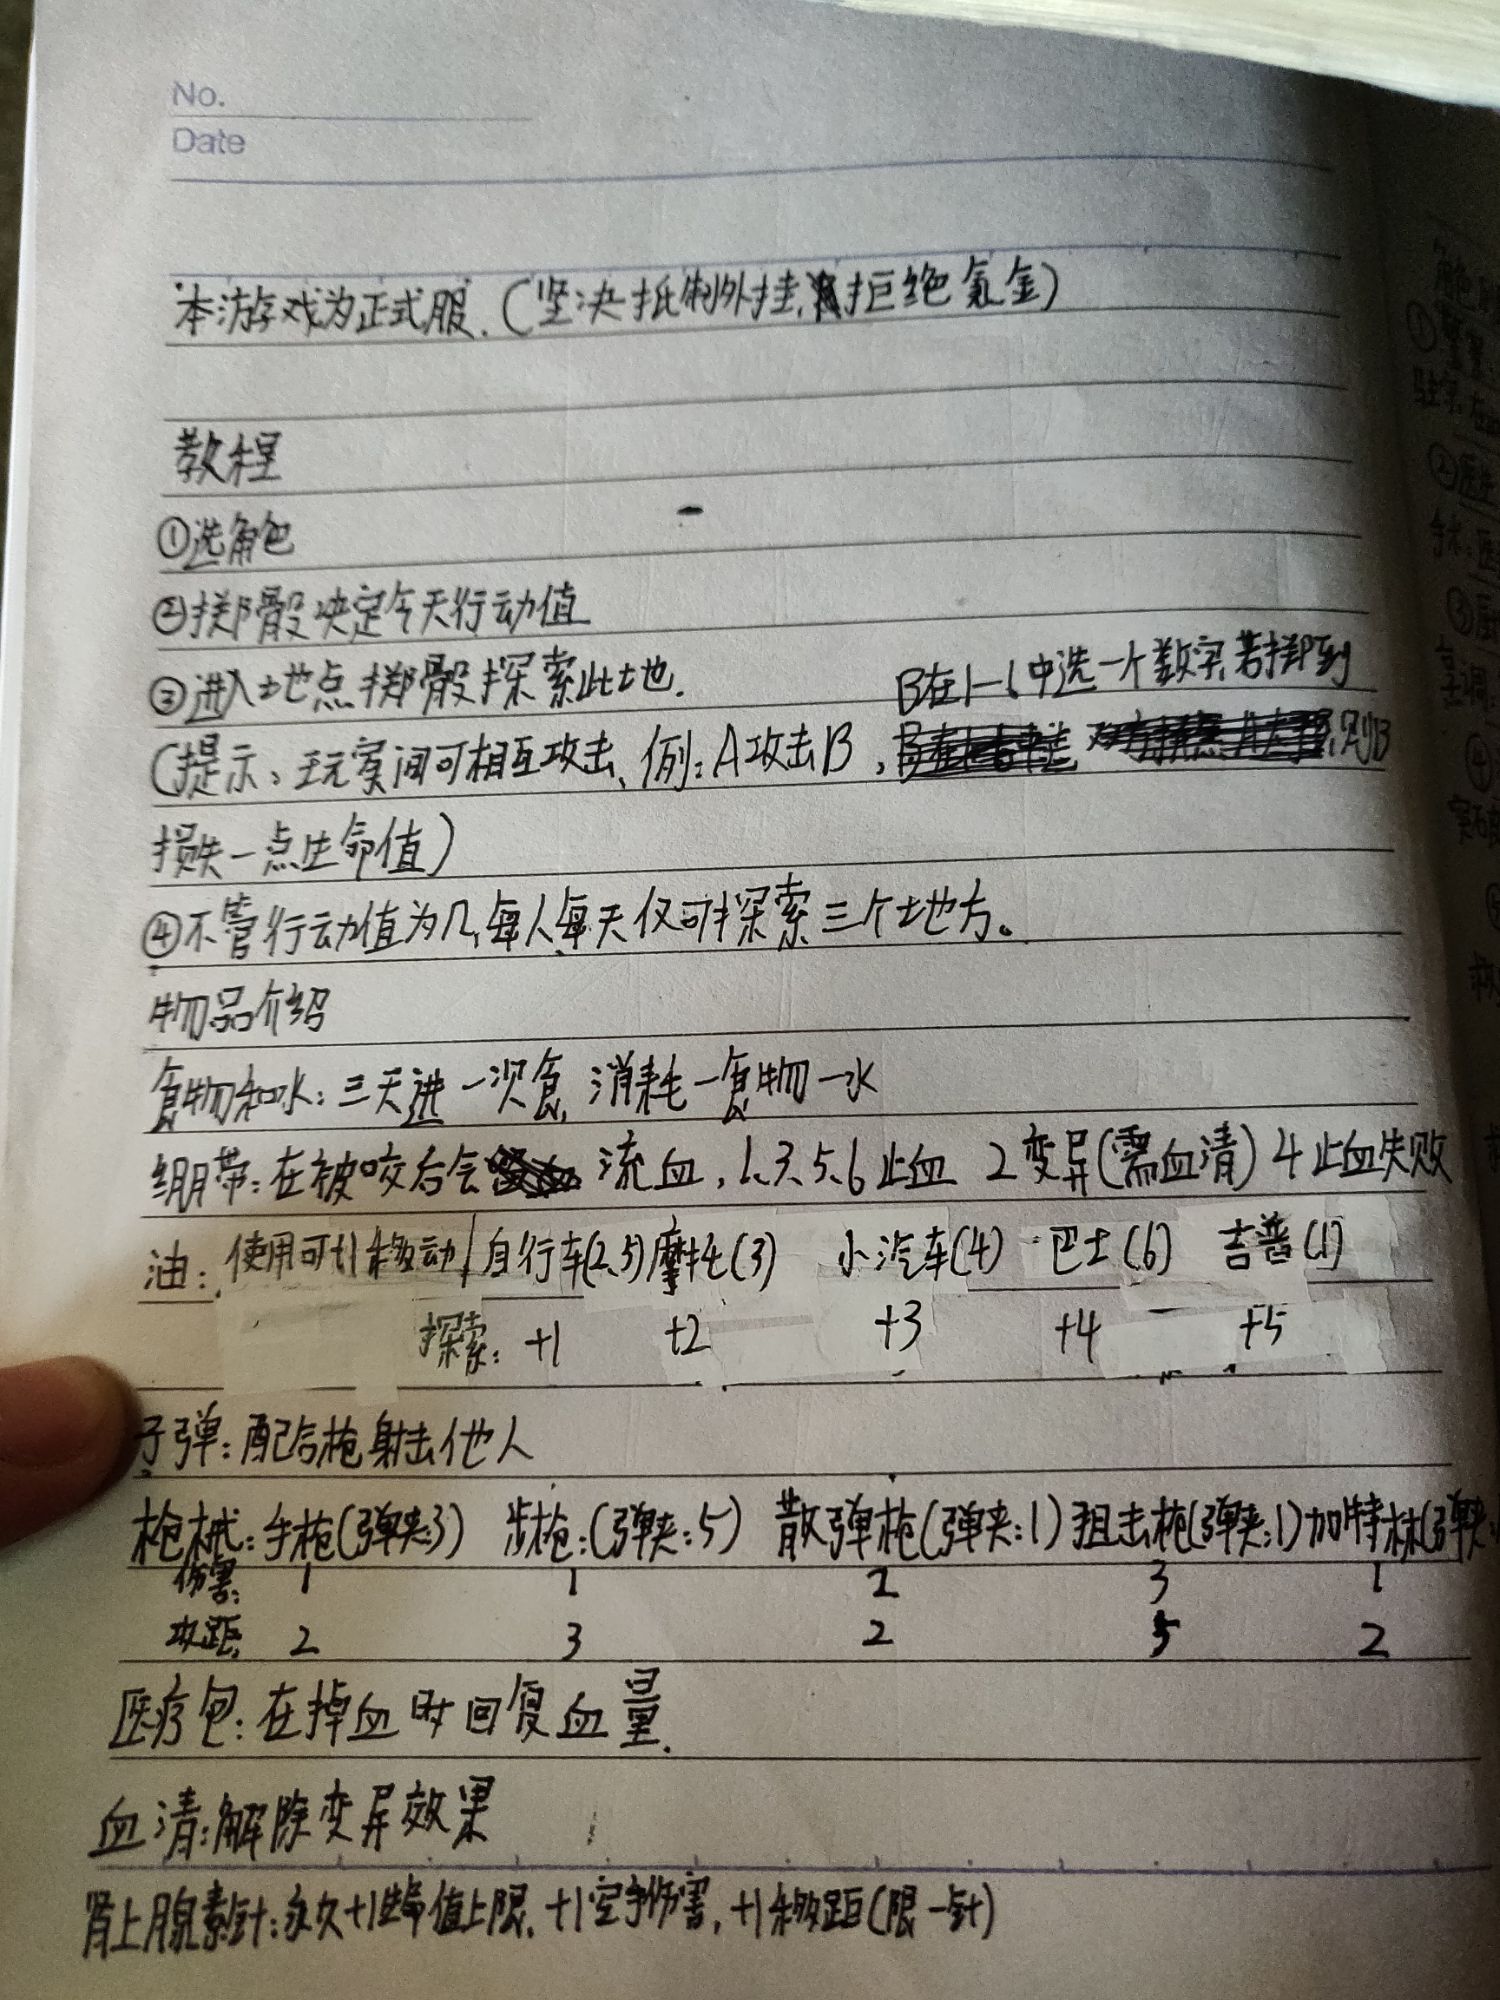 No.
Date
本游戏为正式服.(坚决抵制外挂,拒绝氪金)
教程
①选角色
②掷骰决定今天行动值
③进入地点掷骰探索此地.
B在1-6中选一个数字,若掷到
(提示:玩家间可相互攻击、例:A攻击B, 则B
损失一点生命值)
④不管行动值为几,每人每天仅可探索三个地方。
物品介绍
食物和水:三天进一次食,消耗一食物一水
绷带:在被咬后会 流血,1、3、5、6止血 2变异(需血清)4止血失败
油:使用可+1移动/自行车(2、5)摩托(3) 小汽车(4) 巴士(6) 吉普(1)
探索:+1 +2 +3 +4 +5
子弹:配合枪射击他人
枪械:手枪(弹夹:3) 步枪:(弹夹:5) 散弹枪(弹夹:1)狙击枪(弹夹:1)加特林(弹夹:
伤害: 1 1 2 3 1
攻距: 2 3 2 5 2
医疗包:在掉血时回复血量.
血清:解除变异效果
肾上腺素针:永久+1生命值上限,+1空手伤害,+1移距(限一针)